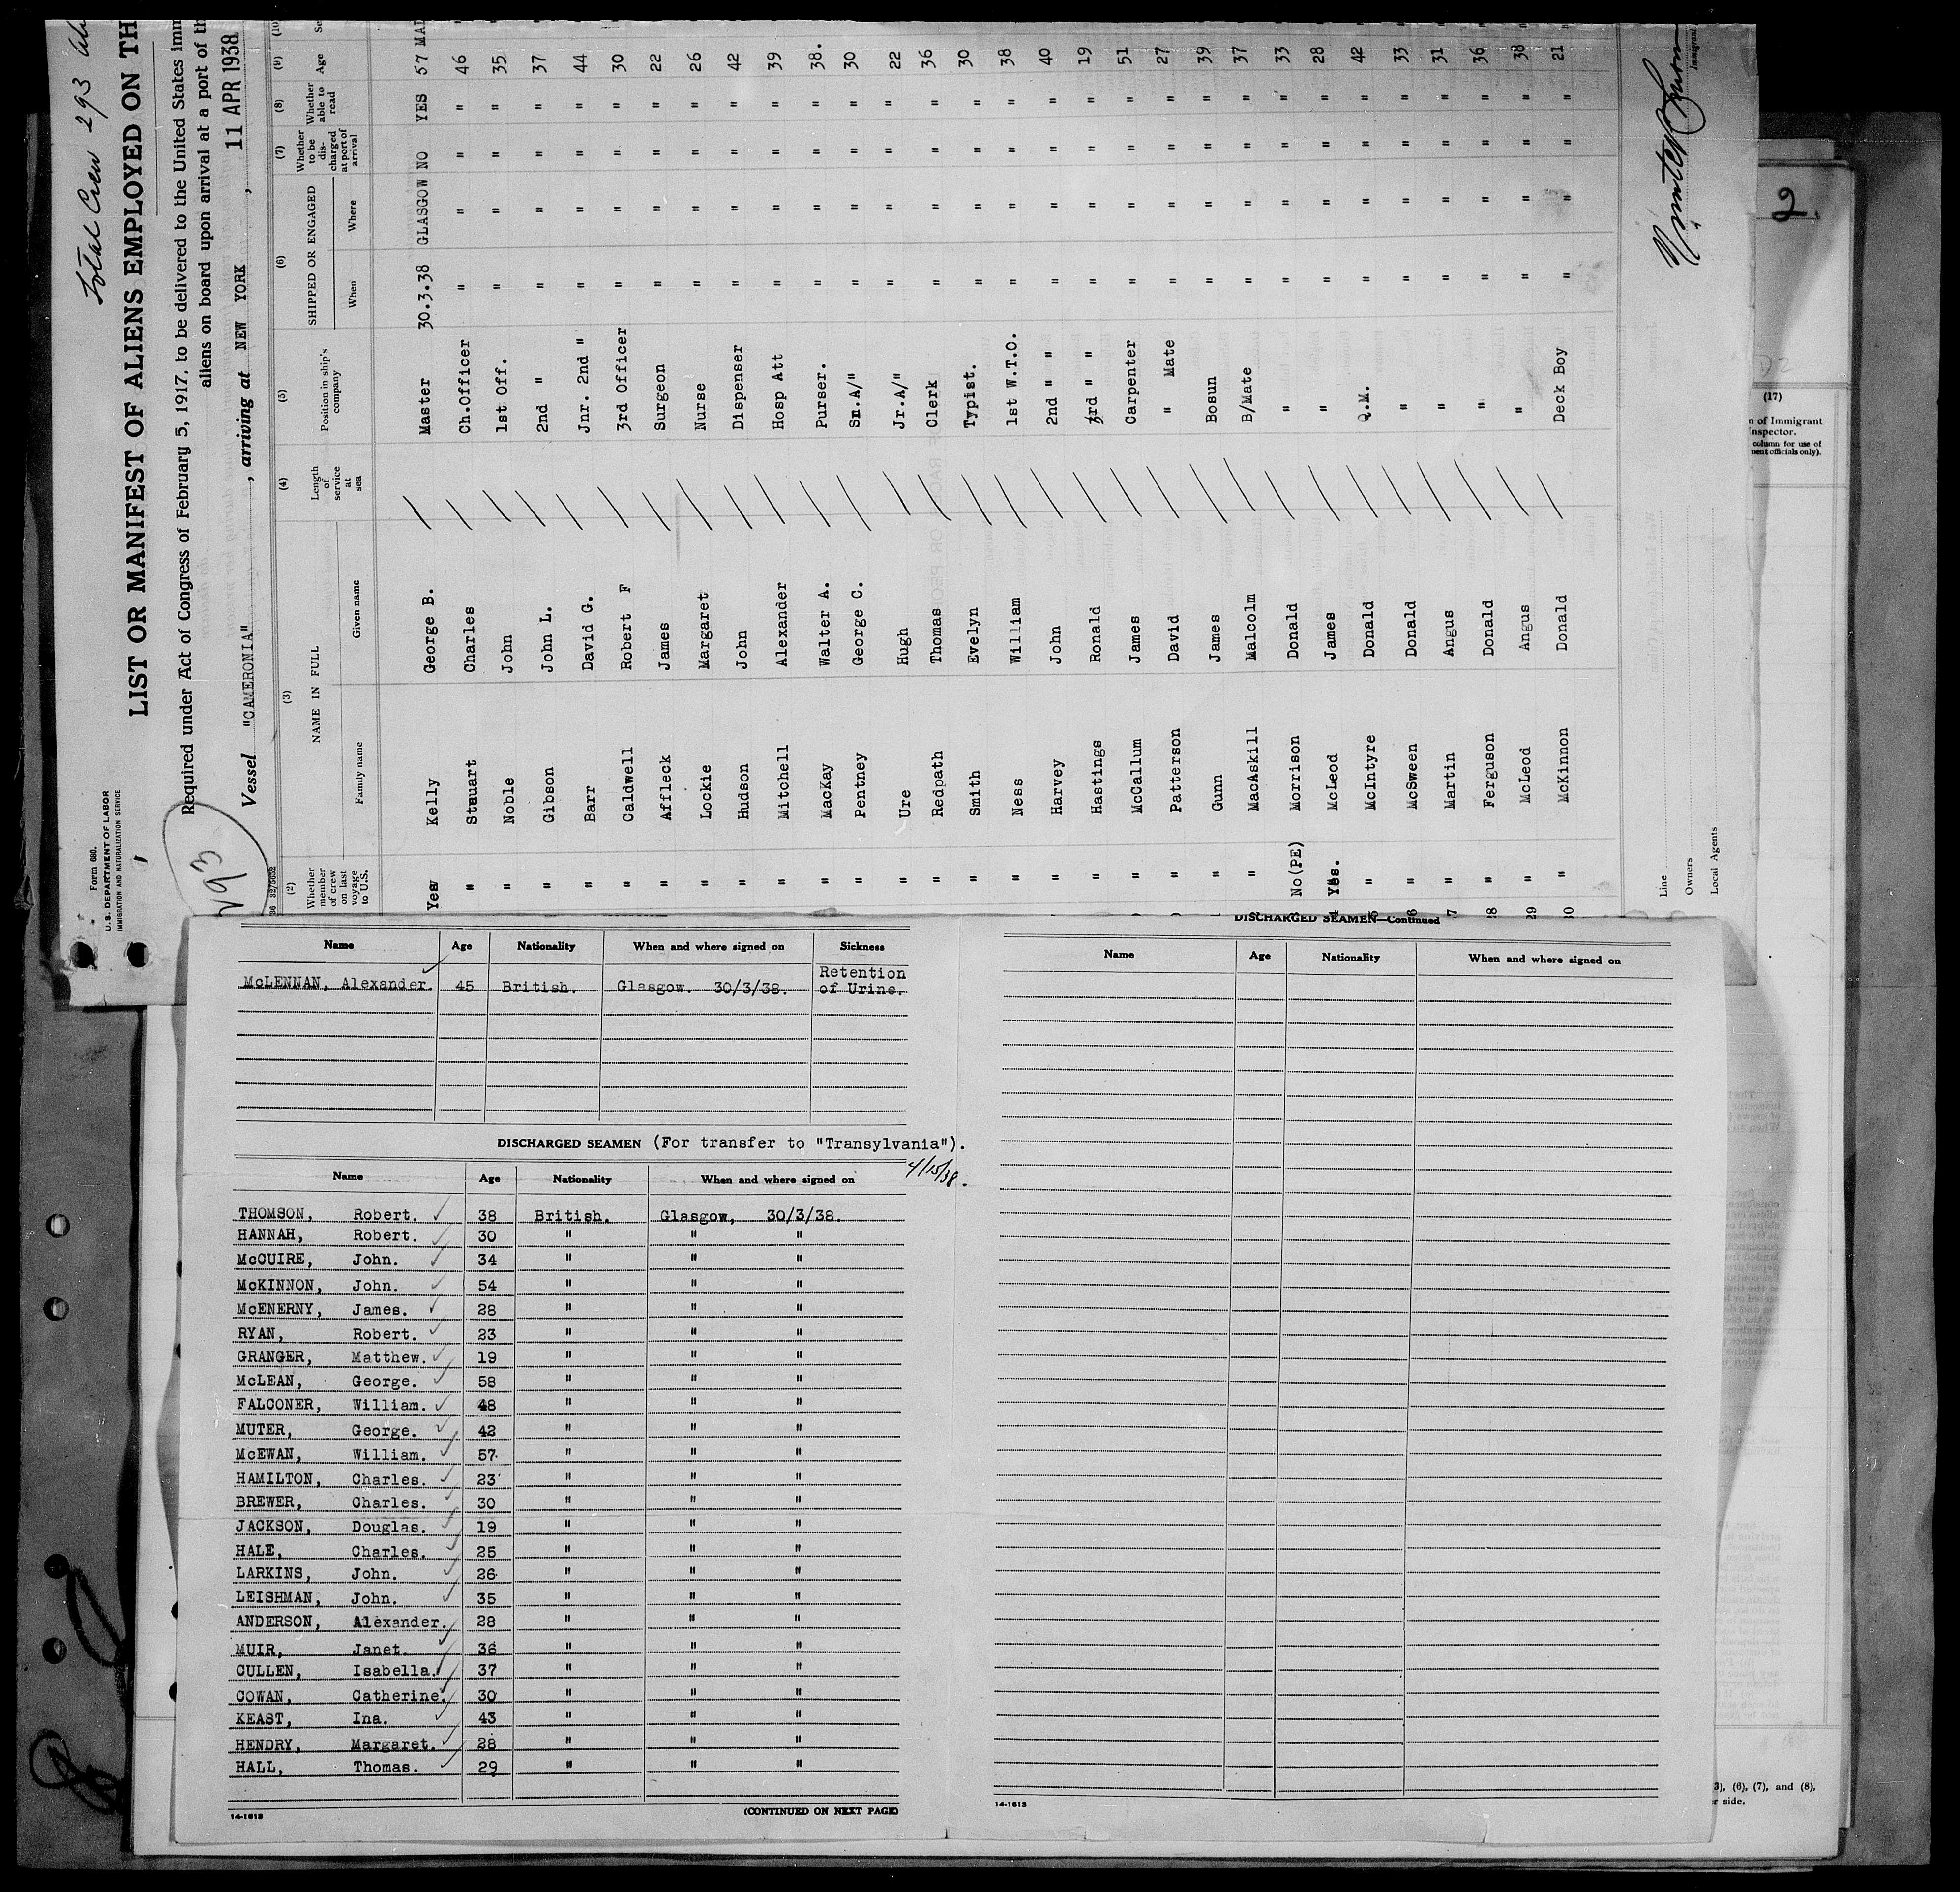 Total Crew 293
Form 680.
U.S. DEPARTMENT OF LABOR
IMMIGRATION AND NATURALIZATION SERVICE
LIST OR MANIFEST OF ALIENS EMPLOYED ON TH
Required under Act of Congress of February 5, 1917, to be delivered to the United States imm
aliens on board upon arrival at a port of th
293
Vessel "CAMERONIA" , arriving at NEW YORK , 11 APR 1938
(2) (3) (4) (5) (6) (7) (8) (9) (10)
Whether member of crew on last voyage to U.S. NAME IN FULL Family name Given name Length of service at sea Position in ship's company SHIPPED OR ENGAGED When Where Whether to be discharged at port of arrival Whether able to read Age Se
Yes Kelly George B. Master 30.3.38 GLASGOW NO YES 57 MAL
" Stauart Charles Ch.Officer " " " " 46 "
" Noble John 1st Off. " " " " 35 "
" Gibson John L. 2nd " " " " " 37 "
" Barr David G. Jnr. 2nd " " " " " 44 "
" Caldwell Robert F 3rd Officer " " " " 30 "
" Affleck James Surgeon " " " " 22 "
" Lockie Margaret Nurse " " " " 26 "
" Hudson John Dispenser " " " " 42 "
" Mitchell Alexander Hosp Att " " " " 39 "
" MacKay Walter A. Purser. " " " " 38. "
" Pentney George C. Sn.A/" " " " " 30 "
" Ure Hugh Jr.A/" " " " " 22 "
" Redpath Thomas Clerk " " " " 36 "
" Smith Evelyn Typist. " " " " 30 "
" Ness William 1st W.T.O. " " " " 38 "
" Harvey John 2nd " " " " " " 40 "
" Hastings Ronald 3rd " " " " " " 19 "
" McCallum James Carpenter " " " " 51 "
" Patterson David " Mate " " " " 27 "
" Gunn James Bosun " " " " 39 "
" MacAskill Malcolm B/Mate " " " " 37 "
No(PE) Morrison Donald " " " " " 33 "
Yes. McLeod James " " " " " 28 "
" McIntyre Donald Q.M. " " " " 42 "
" McSween Donald " " " " " 33 "
" Martin Angus " " " " " 31 "
28 " Ferguson Donald " " " " " 36 "
29 " McLeod Angus " " " " " 38 "
30 " McKinnon Donald Deck Boy " " " " 21 "
Line
Owners
Local Agents
Immigrant
2.
(17)
n of Immigrant
nspector.
column for use of
ment officials only).
3), (6), (7), and (8),
r side.
Name Age Nationality When and where signed on Sickness
McLENNAN, Alexander. 45 British. Glasgow. 30/3/38. Retention of Urine.
DISCHARGED SEAMEN (For transfer to "Transylvania").
4/15/38.
Name Age Nationality When and where signed on
THOMSON, Robert. 38 British. Glasgow, 30/3/38.
HANNAH, Robert. 30 " " "
McGUIRE, John. 34 " " "
McKINNON, John. 54 " " "
McENERNY, James. 28 " " "
RYAN, Robert. 23 " " "
GRANGER, Matthew. 19 " " "
McLEAN, George. 58 " " "
FALCONER, William. 48 " " "
MUTER, George. 42 " " "
McEWAN, William. 57 " " "
HAMILTON, Charles. 23 " " "
BREWER, Charles. 30 " " "
JACKSON, Douglas. 19 " " "
HALE, Charles. 25 " " "
LARKINS, John. 26 " " "
LEISHMAN, John. 35 " " "
ANDERSON, Alexander. 28 " " "
MUIR, Janet. 36 " " "
CULLEN, Isabella. 37 " " "
COWAN, Catherine. 30 " " "
KEAST, Ina. 43 " " "
HENDRY, Margaret. 28 " " "
HALL, Thomas. 29 " " "
14-1613 (CONTINUED ON NEXT PAGE)
DISCHARGED SEAMEN—Continued
Name Age Nationality When and where signed on
14-1613